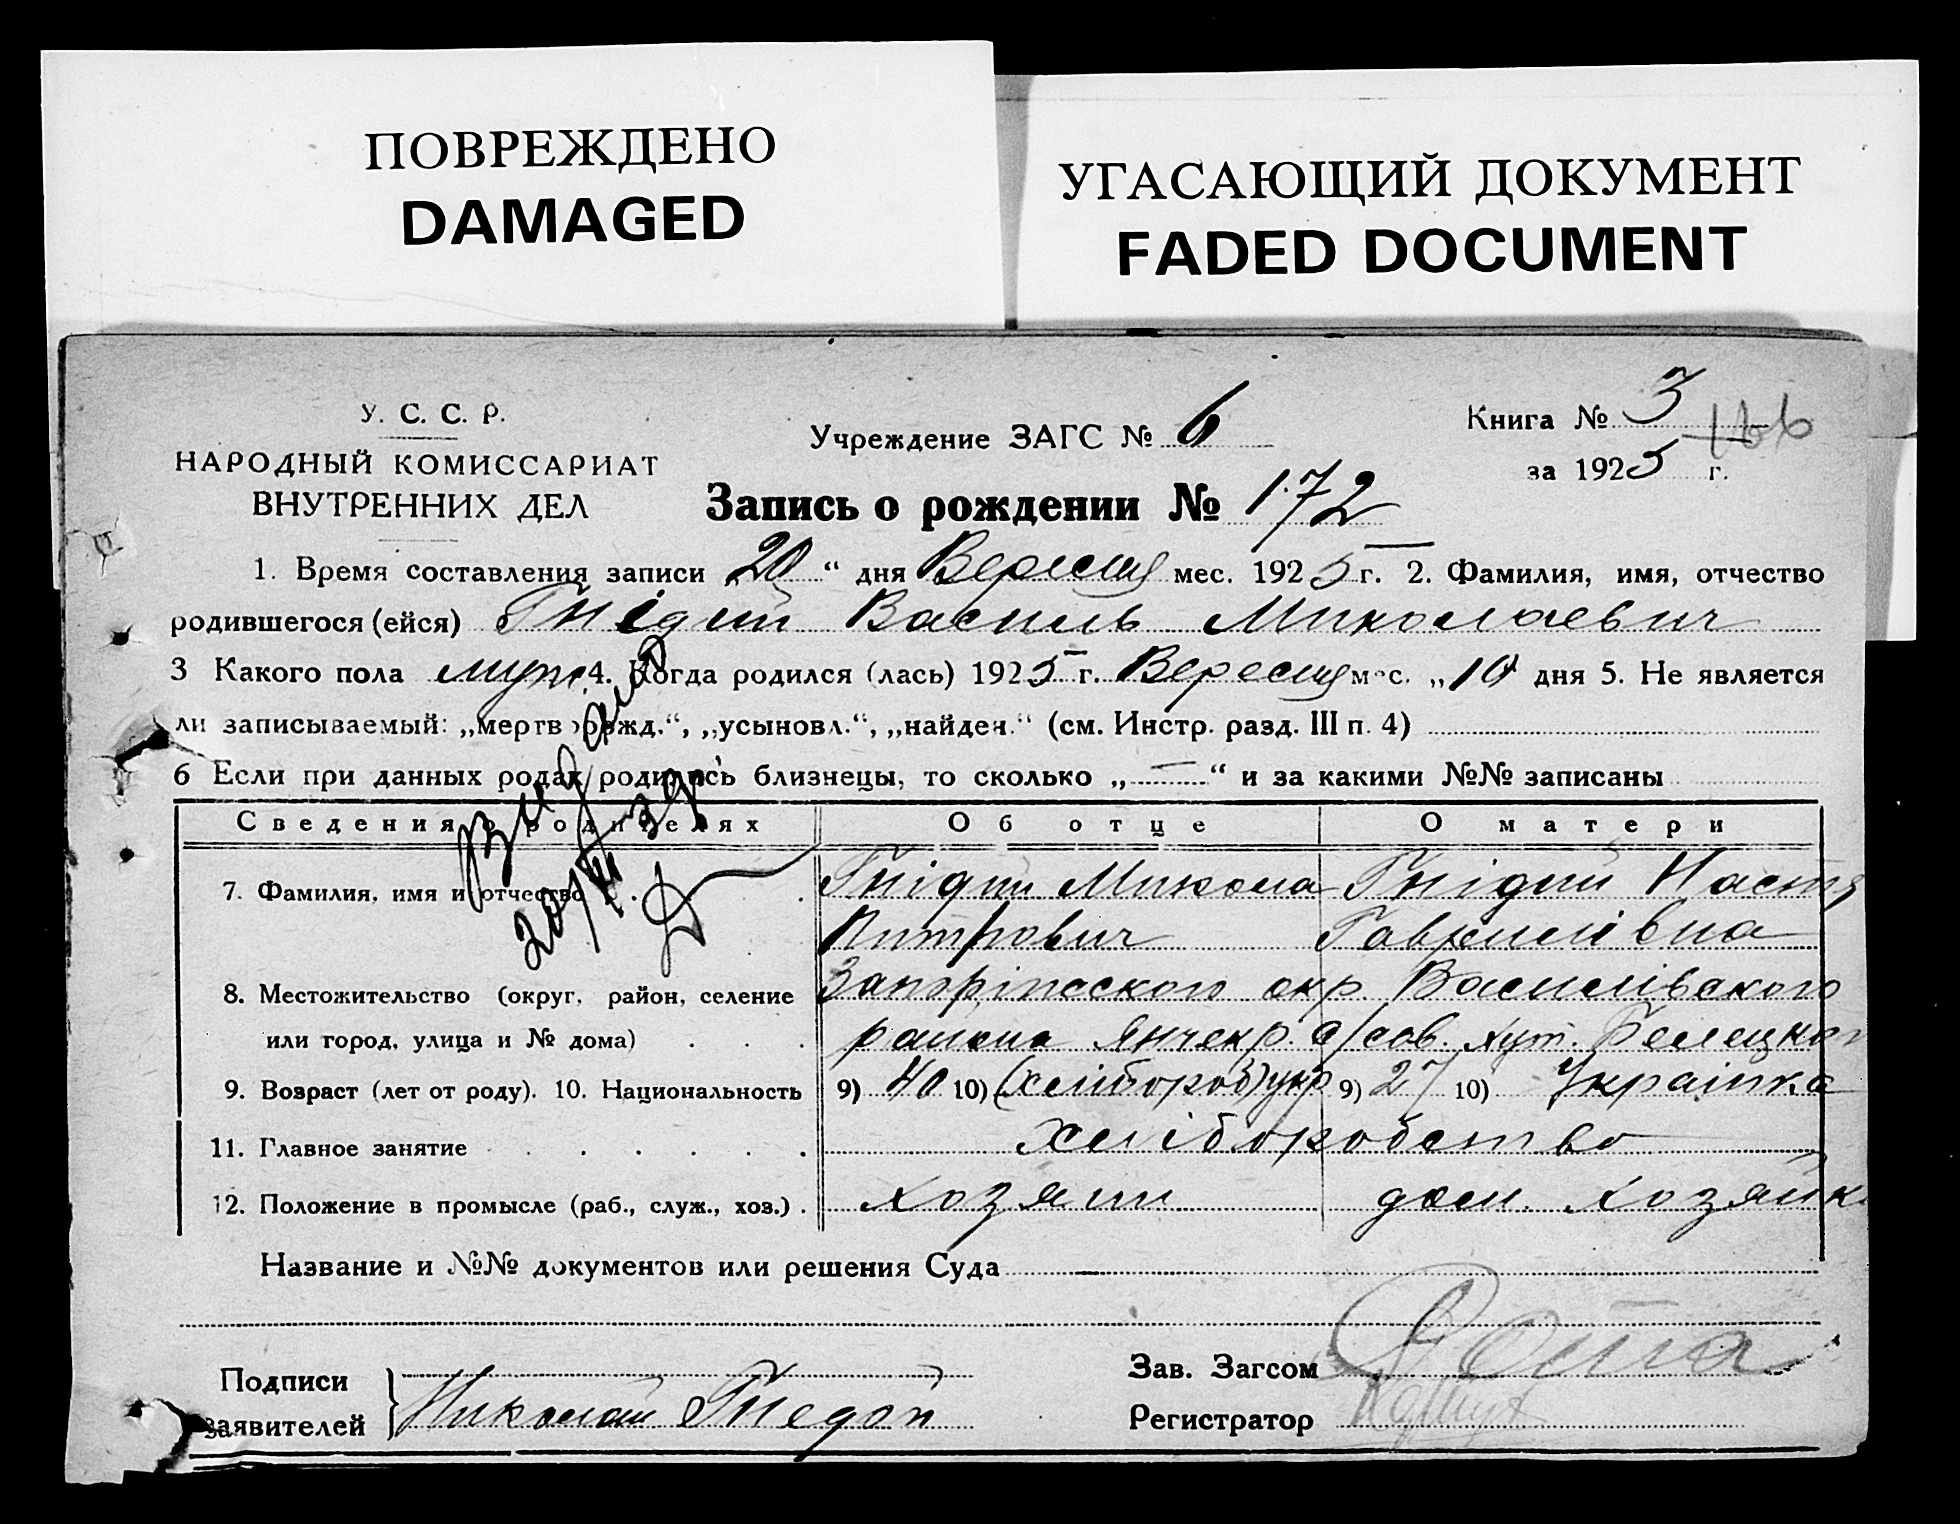 ПОВРЕЖДЕНО
DAMAGED
УГАСАЮЩИЙ ДОКУМЕНТ
FADED DOCUMENT
У. С. С. Р.
НАРОДНЫЙ КОМИССАРИАТ
ВНУТРЕННИХ ДЕЛ
Учреждение ЗАГС № 6
Книга № 3
166
за 1925 г.
Запись о рождении № 172
1. Время составления записи 20 “ дня Вересня мес. 1925 г. 2. Фамилия, имя, отчество
родившегося (ейся) Гнідий Василь Миколаевич
3 Какого пола муж. 4. Когда родился (лась) 1925 г. Вересня мес. „10 дня 5. Не является
ли записываемый: „мертворожд.“, „усыновл.“, „найден.“ (см. Инстр. разд. III п. 4)
6 Если при данных родах родились близнецы, то сколько „—“ и за какими №№ записаны
Сведения о родителях Об отце О матери
7. Фамилия, имя и отчество Гнідий Микола Гнідий Настя
Питрович Гаврилівна
8. Местожительство (округ, район, селение Запоріпсского окр. Василівского
или город, улица и № дома) района Янчекр. с/сов. хут. Белецкого
9. Возраст (лет от роду). 10. Национальность 9) 40 10) (хлібороб) укр 9) 27 10) Украінка
11. Главное занятие хліборобство
12. Положение в промысле (раб., служ., хоз.) хозяин дом. хозяйка
Название и №№ документов или решения Суда —
Подписи
заявителей Николай Гнедой
Зав. Загсом
Регистратор